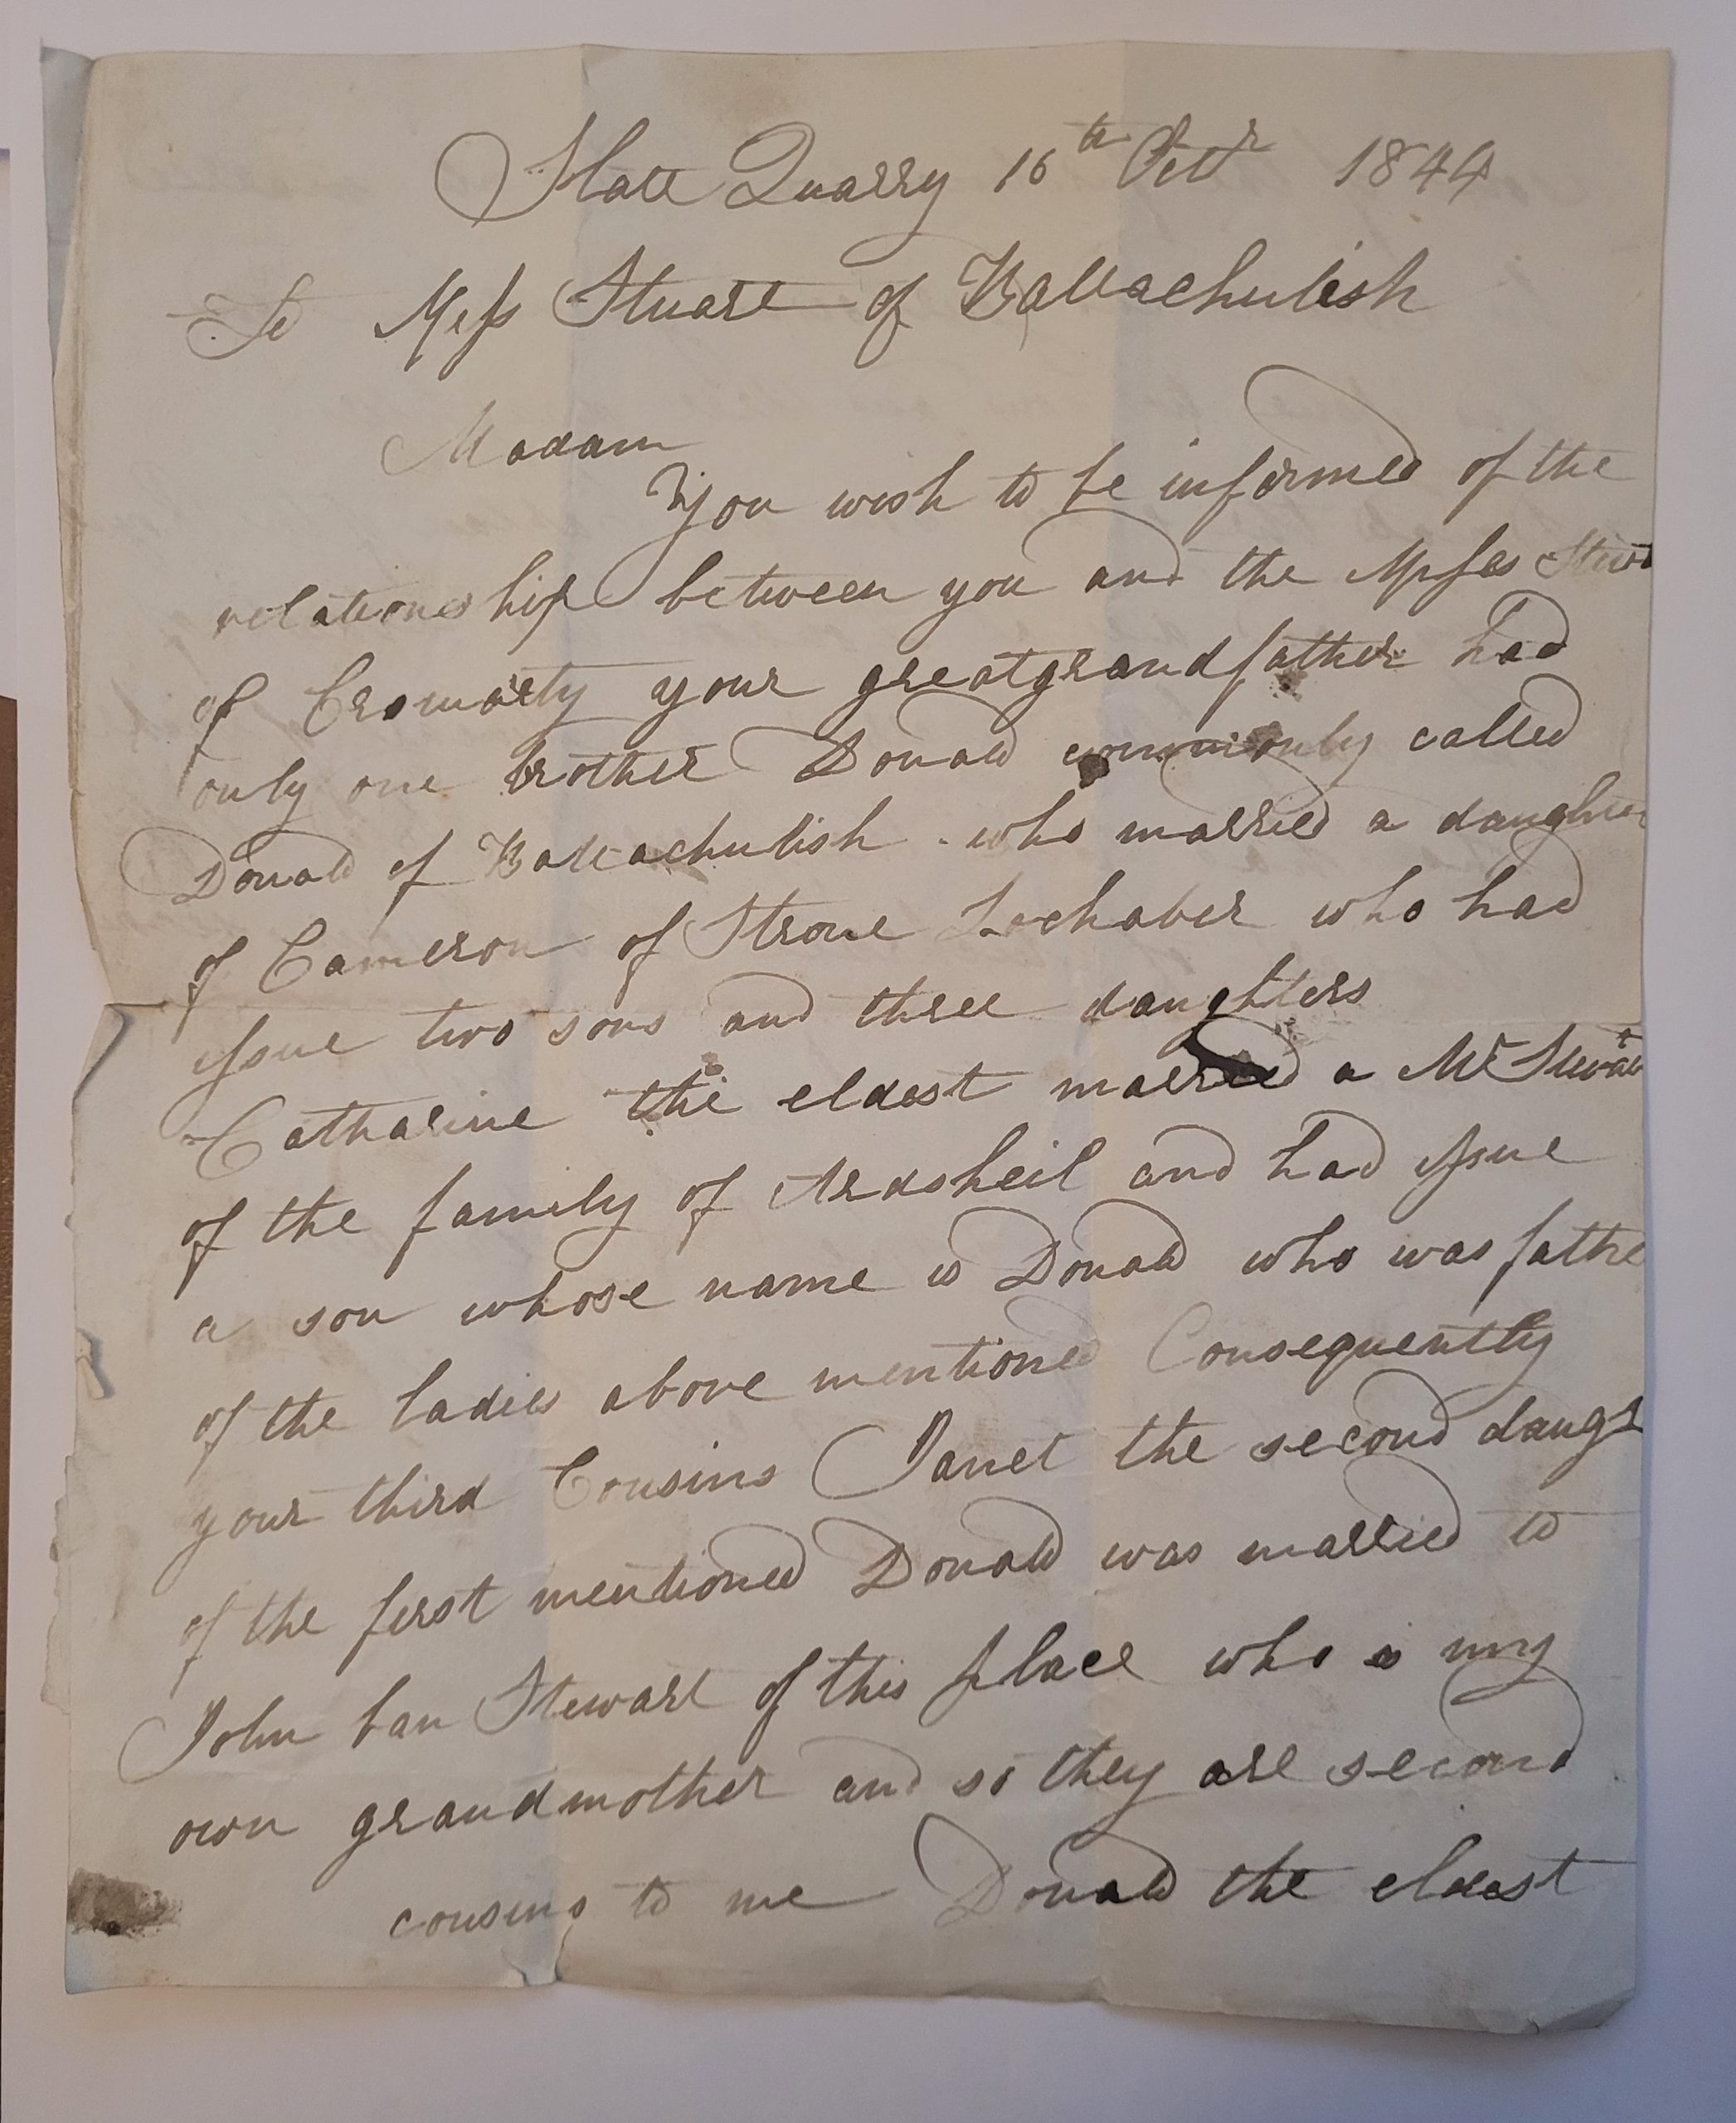 Slate Quarry 16th Octr 1844
To Miss Stuart of Ballachulish
Madam
You wish to be informed of the
relationship between you and the Misses Stewt
of Cromarty your greatgrandfather had
only one brother Donald commonly called
Donald of Ballachulish . who married a daughter
of Cameron of Strone Lochaber who had
issue two sons and three daughters
Catharine the eldest married a Mr Stewart
of the family of Ardsheil and had issue
a son whose name is Donald who was father
of the ladies above mentioned Consequently
your third Cousins Janet the second daugr
of the first mentioned Donald was married to
John ban Stewart of this place who is my
own grandmother and so they are second
cousins to me Donald the eldest